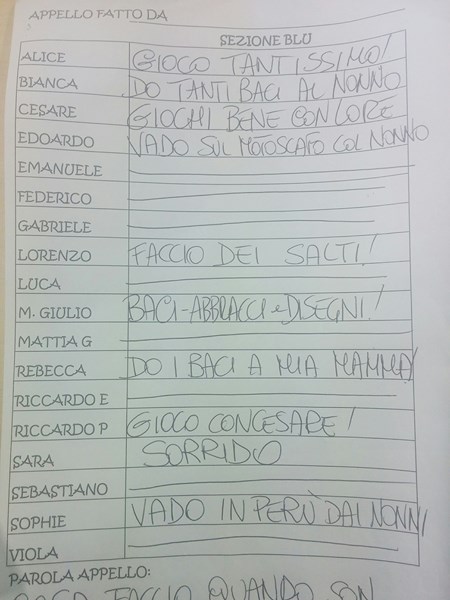 APPELLO FATTO DA
SEZIONE BLU
ALICE GIOCO TANTISSIMO!
BIANCA DO TANTI BACI AL NONNO
CESARE GIOCHI BENE CON LORE
EDOARDO VADO SUL MOTOSCAFO COL NONNO
EMANUELE
FEDERICO
GABRIELE
LORENZO FACCIO DEI SALTI!
LUCA
M. GIULIO BACI-ABBRACCI e DISEGNI!
MATTIA G
REBECCA DO I BACI A MIA MAMMA!
RICCARDO E
RICCARDO P GIOCO CON CESARE!
SARA SORRIDO
SEBASTIANO
SOPHIE VADO IN PERÙ DAI NONNI
VIOLA
PAROLA APPELLO:
COSA FACCIO QUANDO SON